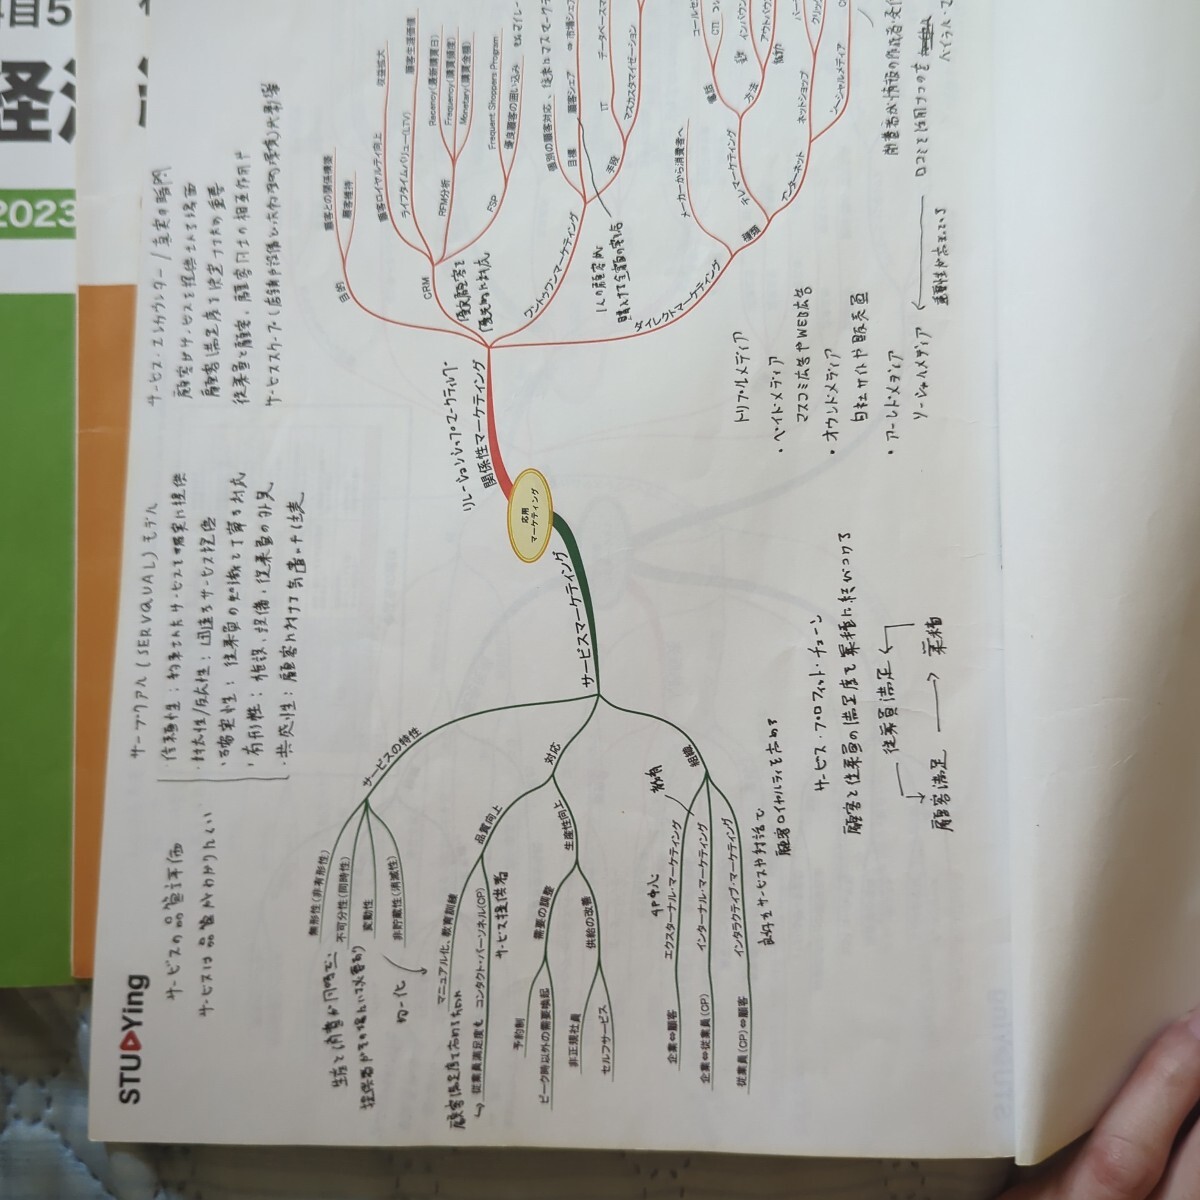 STUDYing
サービスの品質評価
サービスは品質がわかりにくい
サーブクアル(SERVQUAL)モデル
・信頼性：約束されたサービスを確実に提供
・対応性/反応性：迅速なサービス提供
・確実性：従業員の知識と丁寧な対応
・有形性：施設、設備、従業員の外見
・共感性：顧客に対する気遣いや注意
サービス・エンカウンター/真実の瞬間
顧客がサービスを提供される場面
顧客満足度を決定する大の重要
従業員と顧客、顧客同士の相互作用や
応用
マーケティング
関係性マーケティング
リレーションシップマーケティング
目的
顧客との関係構築
顧客維持
CRM
優良顧客を
優先的に対応
顧客ロイヤルティ向上
収益拡大
ライフタイムバリュー(LTV)
顧客生涯価値
RFM分析
Recency(最新購買日)
Frequency(購買頻度)
Monetary(購買金額)
FSP
Frequent Shoppers Program
優良顧客の囲い込み
ワントゥワンマーケティング
目標
個別の顧客対応、従来はマスマーケテ
顧客シェア
⇔ 市場シェア
1人の顧客が
購入する全額の割合
手段
IT
データベースマ
マスカスタマイゼーション
ダイレクトマーケティング
種類
メーカーから消費者へ
テレマーケティング
電話
コールセ
CTI
方法
インバウン
アウトバウン
インターネット
ネットショップ
ソーシャルメディア
トリプルメディア
・ペイドメディア
マスコミ広告やWEB広告
・オウンドメディア
自社サイトや販売員
・アーンドメディア
ソーシャルメディア
重要性が高まっている
サービスマーケティング
サービスの特性
無形性(非有形性)
不可分性(同時性)
変動性
非貯蔵性(消滅性)
生産と消費が同時で、
対応
品質向上
マニュアル化、教育訓練
コンタクト・パーソネル(CP)
サービス提供者
従業員満足度も
生産性向上
需要の調整
予約制
ピーク時以外の需要喚起
供給の改善
非正規社員
セルフサービス
組織
エクスターナル・マーケティング
4P中心
企業⇔顧客
インターナル・マーケティング
教育
企業⇔従業員(CP)
インタラクティブ・マーケティング
従業員(CP)⇔顧客
良好なサービスや対話で
顧客ロイヤルティを高める
サービス・プロフィット・チェーン
顧客と従業員の満足度で業績に結びつける
従業員満足
顧客満足 → 業績
目5
経済
2023